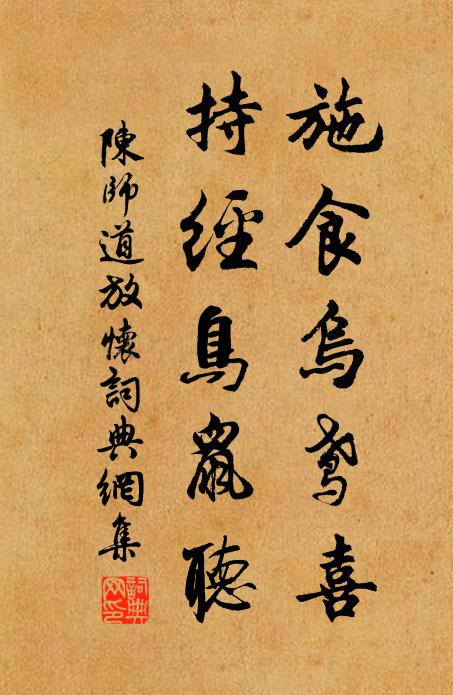 施食烏鳶喜
持經鳥鼠聽
陳師道放懷詞典網集
詞典
网印